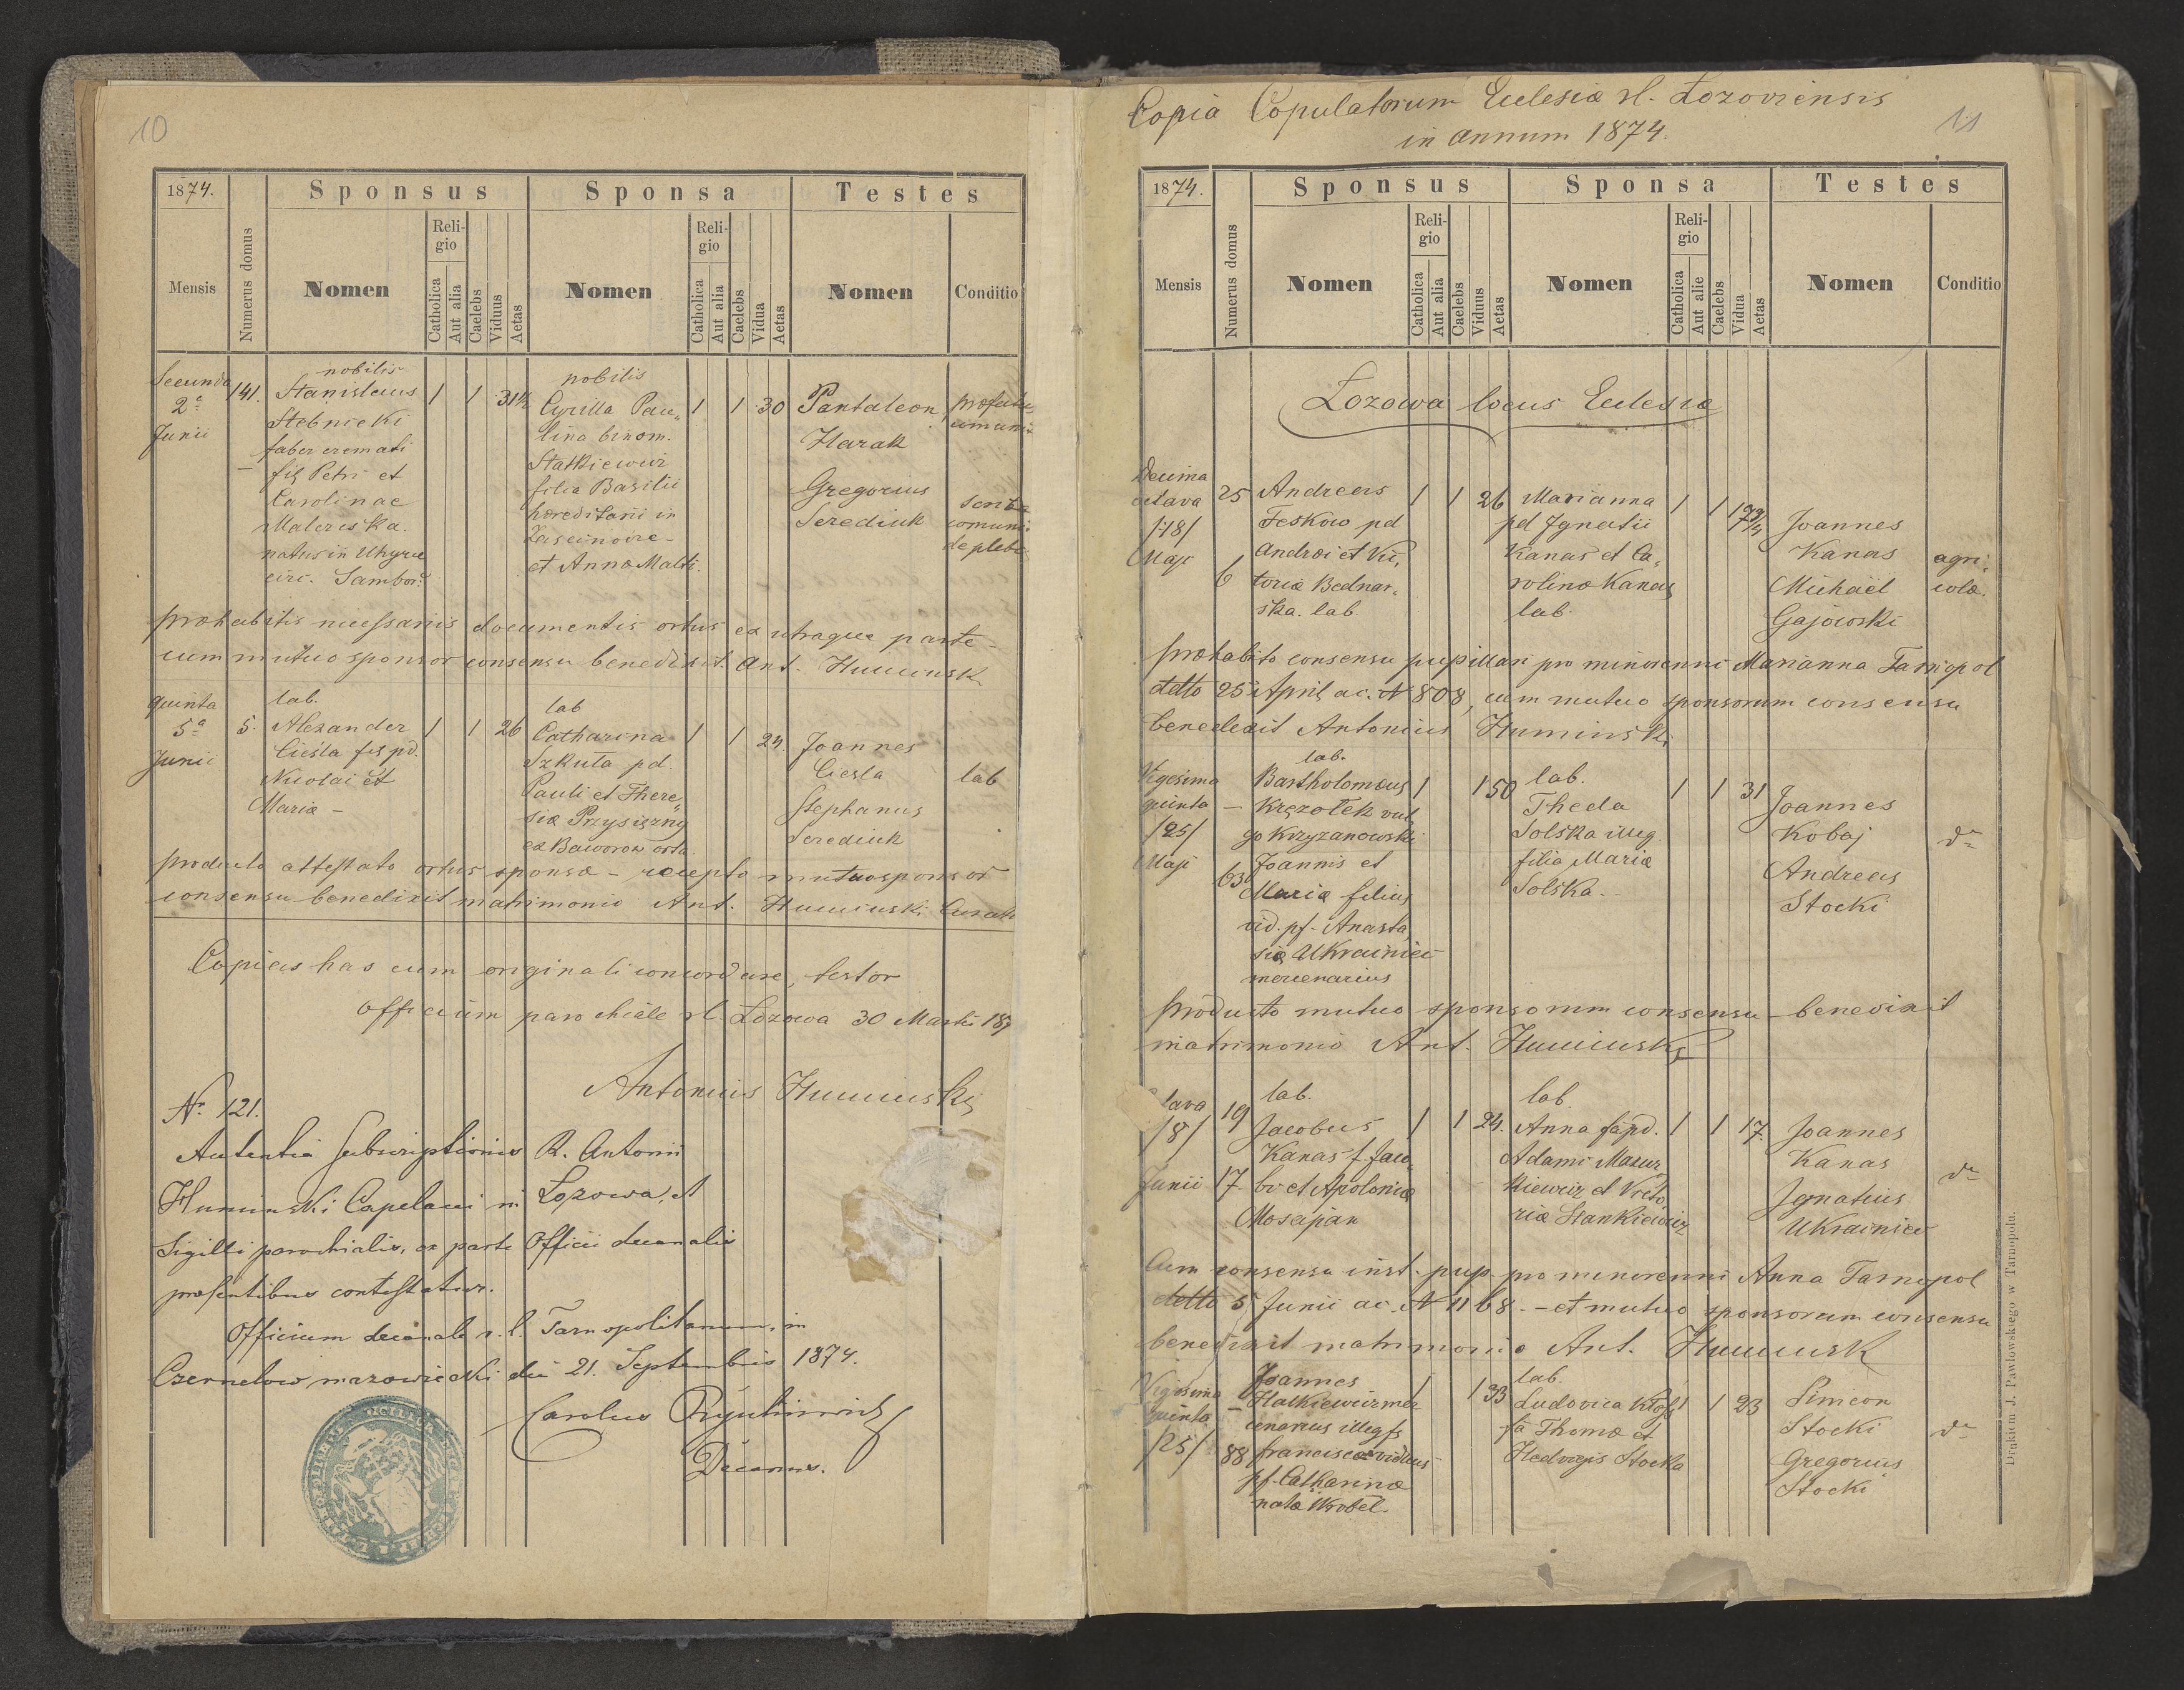 10
1874.
Sponsus
Sponsa
Testes
Mensis
Numerus domus
Nomen
Religio
Catholica
Aut alia
Caelebs
Viduus
Aetas
Nomen
Religio
Catholica
Aut alia
Caelebs
Vidua
Aetas
Nomen
Conditio
Secunda
2a
Junii
141.
nobilis
Stanislaus
Stebnicki
faber
fil Petri et
Carolinae
natus in Uhyrce
circ. Sambor.
1 1 31½
nobilis
Cyrilla Pau„
lina binom.
Statkiewicz
filia Basilii
hæreditarii in
et Anna
1 1 30
Pantaleon
Harak
Gregorius
Serediuk
de plebe
præhabitis necessariis documentis ortus ex utraque parte -
cum mutuo sponsor consensu benedixit Ant. Huminsk
quinta
5a
Junii
5.
lab.
Alexander
Ciesla fil pd.
Nicolai et
Mariæ -
1 1 26
lab
Catharina
Szkuta pd.
Pauli et There„
siæ Przysiężny
ex Baworow orta
1 1 24.
Joannes
Ciesla
Stephanus
Serediuk
lab
producto attestato ortus sponsæ - recepto mutuo sponsor
consensu benedixit matrimonio Ant. Huminski Curat
Copias has cum originali concordare, testor
Officium parochiale rl. Lozowa 30 Martii 187
Antonius Huminski
Nr. 121.
Autentia subscriptionis R. Antonii
Huminski Capelani in Lozowa, et
Sigilli parochialis, ex parte Officii decanalis
præsentibus contestatur.
Officium decanale r. l. Tarnopolitanum, in
Czernelow mazowiecki die 21. Septembris 1874.
Carolus
Decanus.
Copia Copulatorum Eclesiæ rl. Lozoviensis
in annum 1874.
11
1874.
Sponsus
Sponsa
Testes
Mensis
Numerus domus
Nomen
Religio
Catholica
Aut alia
Caelebs
Viduus
Aetas
Nomen
Religio
Catholica
Aut alie
Caelebs
Vidua
Aetas
Nomen
Conditio
Lozowa locus Eclesiæ
Decima
octava
/18/
Maji
25
6
Andreas
Feskow pd
Andræi et Vic„
toriæ Bednar„
ska. lab.
1 1 26
Marianna
pd Ignatii
Kanas et Ca„
rolinæ Kanas
lab.
1 1
Joannes
Kanas
Michaël
Gajowski
agri„
colæ.
præhabito consensu pupillari pro minorenni Marianna Tarnopol
detto 25 April ac. N 808, cum mutuo sponsorum consensu
benedixit Antonius Huminski
Vigesima
quinta
/25/
Maji
—
63
lab.
Bartholomæus
Kręzołek vul
go Krzyzanowski
Joannis et
Mariæ filius
vid. pf. Anasta
siæ Ukrainiec
mercenarius
1 1 50
lab.
Theda
Solska illeg.
filia Mariæ
Solska.
1 1 31
Joannes
Kobaj
Andreas
Stocki
dto
Producto mutuo sponsorum consensu benedixit
matrimonio Ant. Huminski
tava
/8/
Junii
19
17.
lab.
Jacobus
Kanas f. Jaco„
bi et Apoloniæ
Mosajan
1 1 24.
lab.
Anna fa pd.
Adami Mazur„
kiewicz et Victo
riæ Stankiewicz
1 1 17.
Joannes
Kanas
Ignatius
Ukrainiec
dto
Cum consensu inst. pup. pro minorenni Anna Tarnopol
detto 5 Junii ac. N 1168. - et mutuo sponsorum consensu
benedixit matrimonio Ant. Huminsk
Vigesima
quinta
/25/
—
88
Joannes
Halkiewicz mer
cenarius illeg fs
Franciscæ viduus
pf. Catharinæ
natæ Wrobel.
1 1 33
lab.
Ludovica
fa Thomæ et
Hedvigis Stocka
1 1 23
Simeon
Stocki
Gregorius
Stocki
dto
Drukiem J. Pawłowskiego w Tarnopolu.